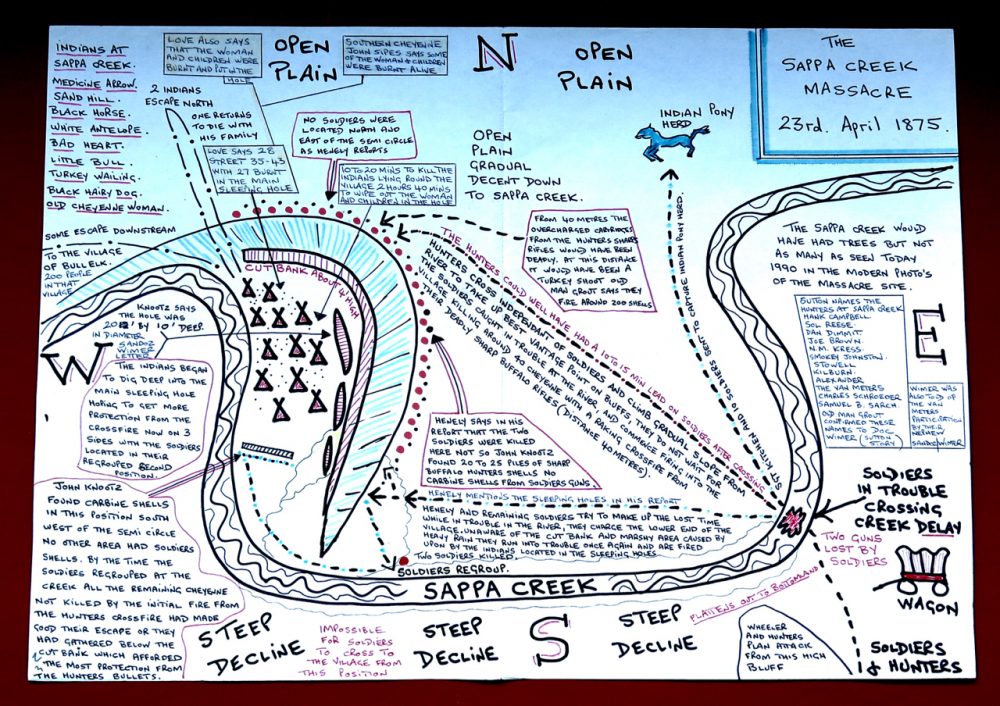 INDIANS AT
SAPPA CREEK.
MEDICINE ARROW.
SAND HILL.
BLACK HORSE.
WHITE ANTELOPE.
BAD HEART.
LITTLE BULL.
TURKEY WAILING.
BLACK HAIRY DOG.
OLD CHEYENNE WOMAN.
LOVE ALSO SAYS
THAT THE WOMAN
AND CHILDREN WERE
BURNT AND PUT IN THE
HOLE
OPEN
PLAIN
SOUTHERN CHEYENNE
JOHN SIPES SAYS SOME
OF THE WOMAN & CHILDREN
WERE BURNT ALIVE
N
OPEN
PLAIN
THE
SAPPA CREEK
MASSACRE
23rd. April 1875.
2 INDIANS
ESCAPE NORTH
ONE RETURNS
TO DIE WITH
HIS FAMILY
NO SOLDIERS WERE
LOCATED NORTH AND
EAST OF THE SEMI CIRCLE
AS HENELY REPORTS
INDIAN PONY
HERD
OPEN
PLAIN
GRADUAL
DECENT DOWN
TO SAPPA CREEK.
LOVE SAYS 28
STREET 35-43
WITH 27 BURNT
IN THE MAIN
SLEEPING HOLE
10 TO 20 MINS TO KILL THE
INDIANS LYING ROUND THE
VILLAGE, 2 HOURS 40 MINS
TO WIPE OUT THE WOMAN
AND CHILDREN IN THE HOLE
SOME ESCAPE DOWNSTREAM
TO THE VILLAGE
OF BULL ELK.
200 PEOPLE
IN THAT
VILLAGE
CUT BANK ABOUT 4' HIGH
FROM 40 METRES THE
OVERCHARGED CADRIAGES
FROM THE HUNTERS SHARPS
RIFLES WOULD HAVE BEEN
DEADLY. AT THIS DISTANCE
IT WOULD HAVE BEEN A
TURKEY SHOOT OLD
MAN GROUT SAYS THEY
FIRE AROUND 200 SHELLS
THE SAPPA CREEK WOULD
HAVE HAD TREES BUT NOT
AS MANY AS SEEN TODAY
1990 IN THE MODERN PHOTO'S
OF THE MASSACRE SITE.
THE HUNTERS COULD WELL HAVE HAD A 10 TO 15 MIN LEAD ON SOLDIERS AFTER CROSSING
HUNTERS CROSS INDEPENDANT OF SOLDIERS AND CLIMB GRADUAL SLOPE FROM
RIVER TO TAKE UP BEST VANTAGE POINT ON BLUFFS. THEY DO NOT WAIT FOR
THE SOLDIERS CAUGHT IN TROUBLE AT THE RIVER AND COMMENCE FIRING INTO THE
VILLAGE KILLING AROUND 40 CHEYENNE WITH A RAKING CROSSFIRE FROM
THEIR DEADLY SHARP BUFFALO RIFLES (DISTANCE 40 METERS).
SGT KITCHEN AND 10 SOLDIERS SENT TO CAPTURE INDIAN PONY HERD.
KNOOTZ SAYS
THE HOLE WAS
20' BY 10' DEEP.
IN DIAMETER
SANDOZ
WIMER
LETTER
W
THE INDIANS BEGAN
TO DIG DEEP INTO THE
MAIN SLEEPING HOLE
HOPING TO GET MORE
PROTECTION FROM THE
CROSSFIRE NOW ON 3
SIDES WITH THE SOLDIERS
LOCATED IN THEIR
REGROUPED SECOND
POSITION.
SUTTON NAMES THE
HUNTERS AT SAPPA CREEK
HANK CAMPBELL
SOL REESE.
DAN DIMMIT.
JOE BROWN.
N.M. KRESS.
SMOKEY JOHNSTON.
STOWELL.
KILBURN.
ALEXANDER.
THE VAN METERS
CHARLES SCHROEDER
SAMUEL B. SARCH.
OLD MAN GROUT
CONFIRMED THESE
NAMES TO DOC.
WIMER (SUTTON
STORY)
E
WIMER WAS
ALSO TOLD OF
THE VAN
METERS
PARTICIPATION
BY THEIR
NEPHEW
SANDOZ WIMER
HENELY SAYS IN HIS
REPORT THAT THE TWO
SOLDIERS WERE KILLED
HERE NOT SO JOHN KNOOTZ
FOUND 20 TO 25 PILES OF SHARP
BUFFALO HUNTERS SHELLS NO
CARBINE SHELLS FROM SOLDIERS GUNS
HENELY MENTIONS THE SLEEPING HOLES IN HIS REPORT
HENELY AND REMAINING SOLDIERS TRY TO MAKE UP THE LOST TIME
WHILE IN TROUBLE IN THE RIVER, THEY CHARGE THE LOWER END OF THE
VILLAGE. UNAWARE OF THE CUT BANK AND MARSHY AREA CAUSED BY
HEAVY RAIN THEY RUN INTO TROUBLE ONCE AGAIN AND ARE FIRED
UPON BY THE INDIANS LOCATED IN THE SLEEPING HOLES.
TWO SOLDIERS KILLED.
SOLDIERS REGROUP.
SOLDIERS
IN TROUBLE
CROSSING
CREEK DELAY
TWO GUNS
LOST BY
SOLDIERS
WAGON
SOLDIERS
& HUNTERS
JOHN KNOOTZ
FOUND CARBINE SHELLS
IN THIS POSITION SOUTH
WEST OF THE SEMI CIRCLE
NO OTHER AREA HAD SOLDIERS
SHELLS. BY THE TIME THE
SOLDIERS REGROUPED AT THE
CREEK ALL THE REMAINING CHEYENNE
NOT KILLED BY THE INITIAL FIRE FROM
THE HUNTERS CROSSFIRE HAD MADE
GOOD THEIR ESCAPE OR THEY
HAD GATHERED BELOW THE
CUT BANK WHICH AFFORDED
THE MOST PROTECTION FROM
THE HUNTERS BULLETS.
SAPPA CREEK
STEEP
DECLINE
IMPOSSIBLE
FOR SOLDIERS
TO CROSS TO
THE VILLAGE FROM
THIS POSITION
STEEP
DECLINE
S
STEEP
DECLINE
FLATTENS OUT TO BOTTOMLAND
WHEELER
AND HUNTERS
PLAN ATTACK
FROM THIS HIGH
BLUFF